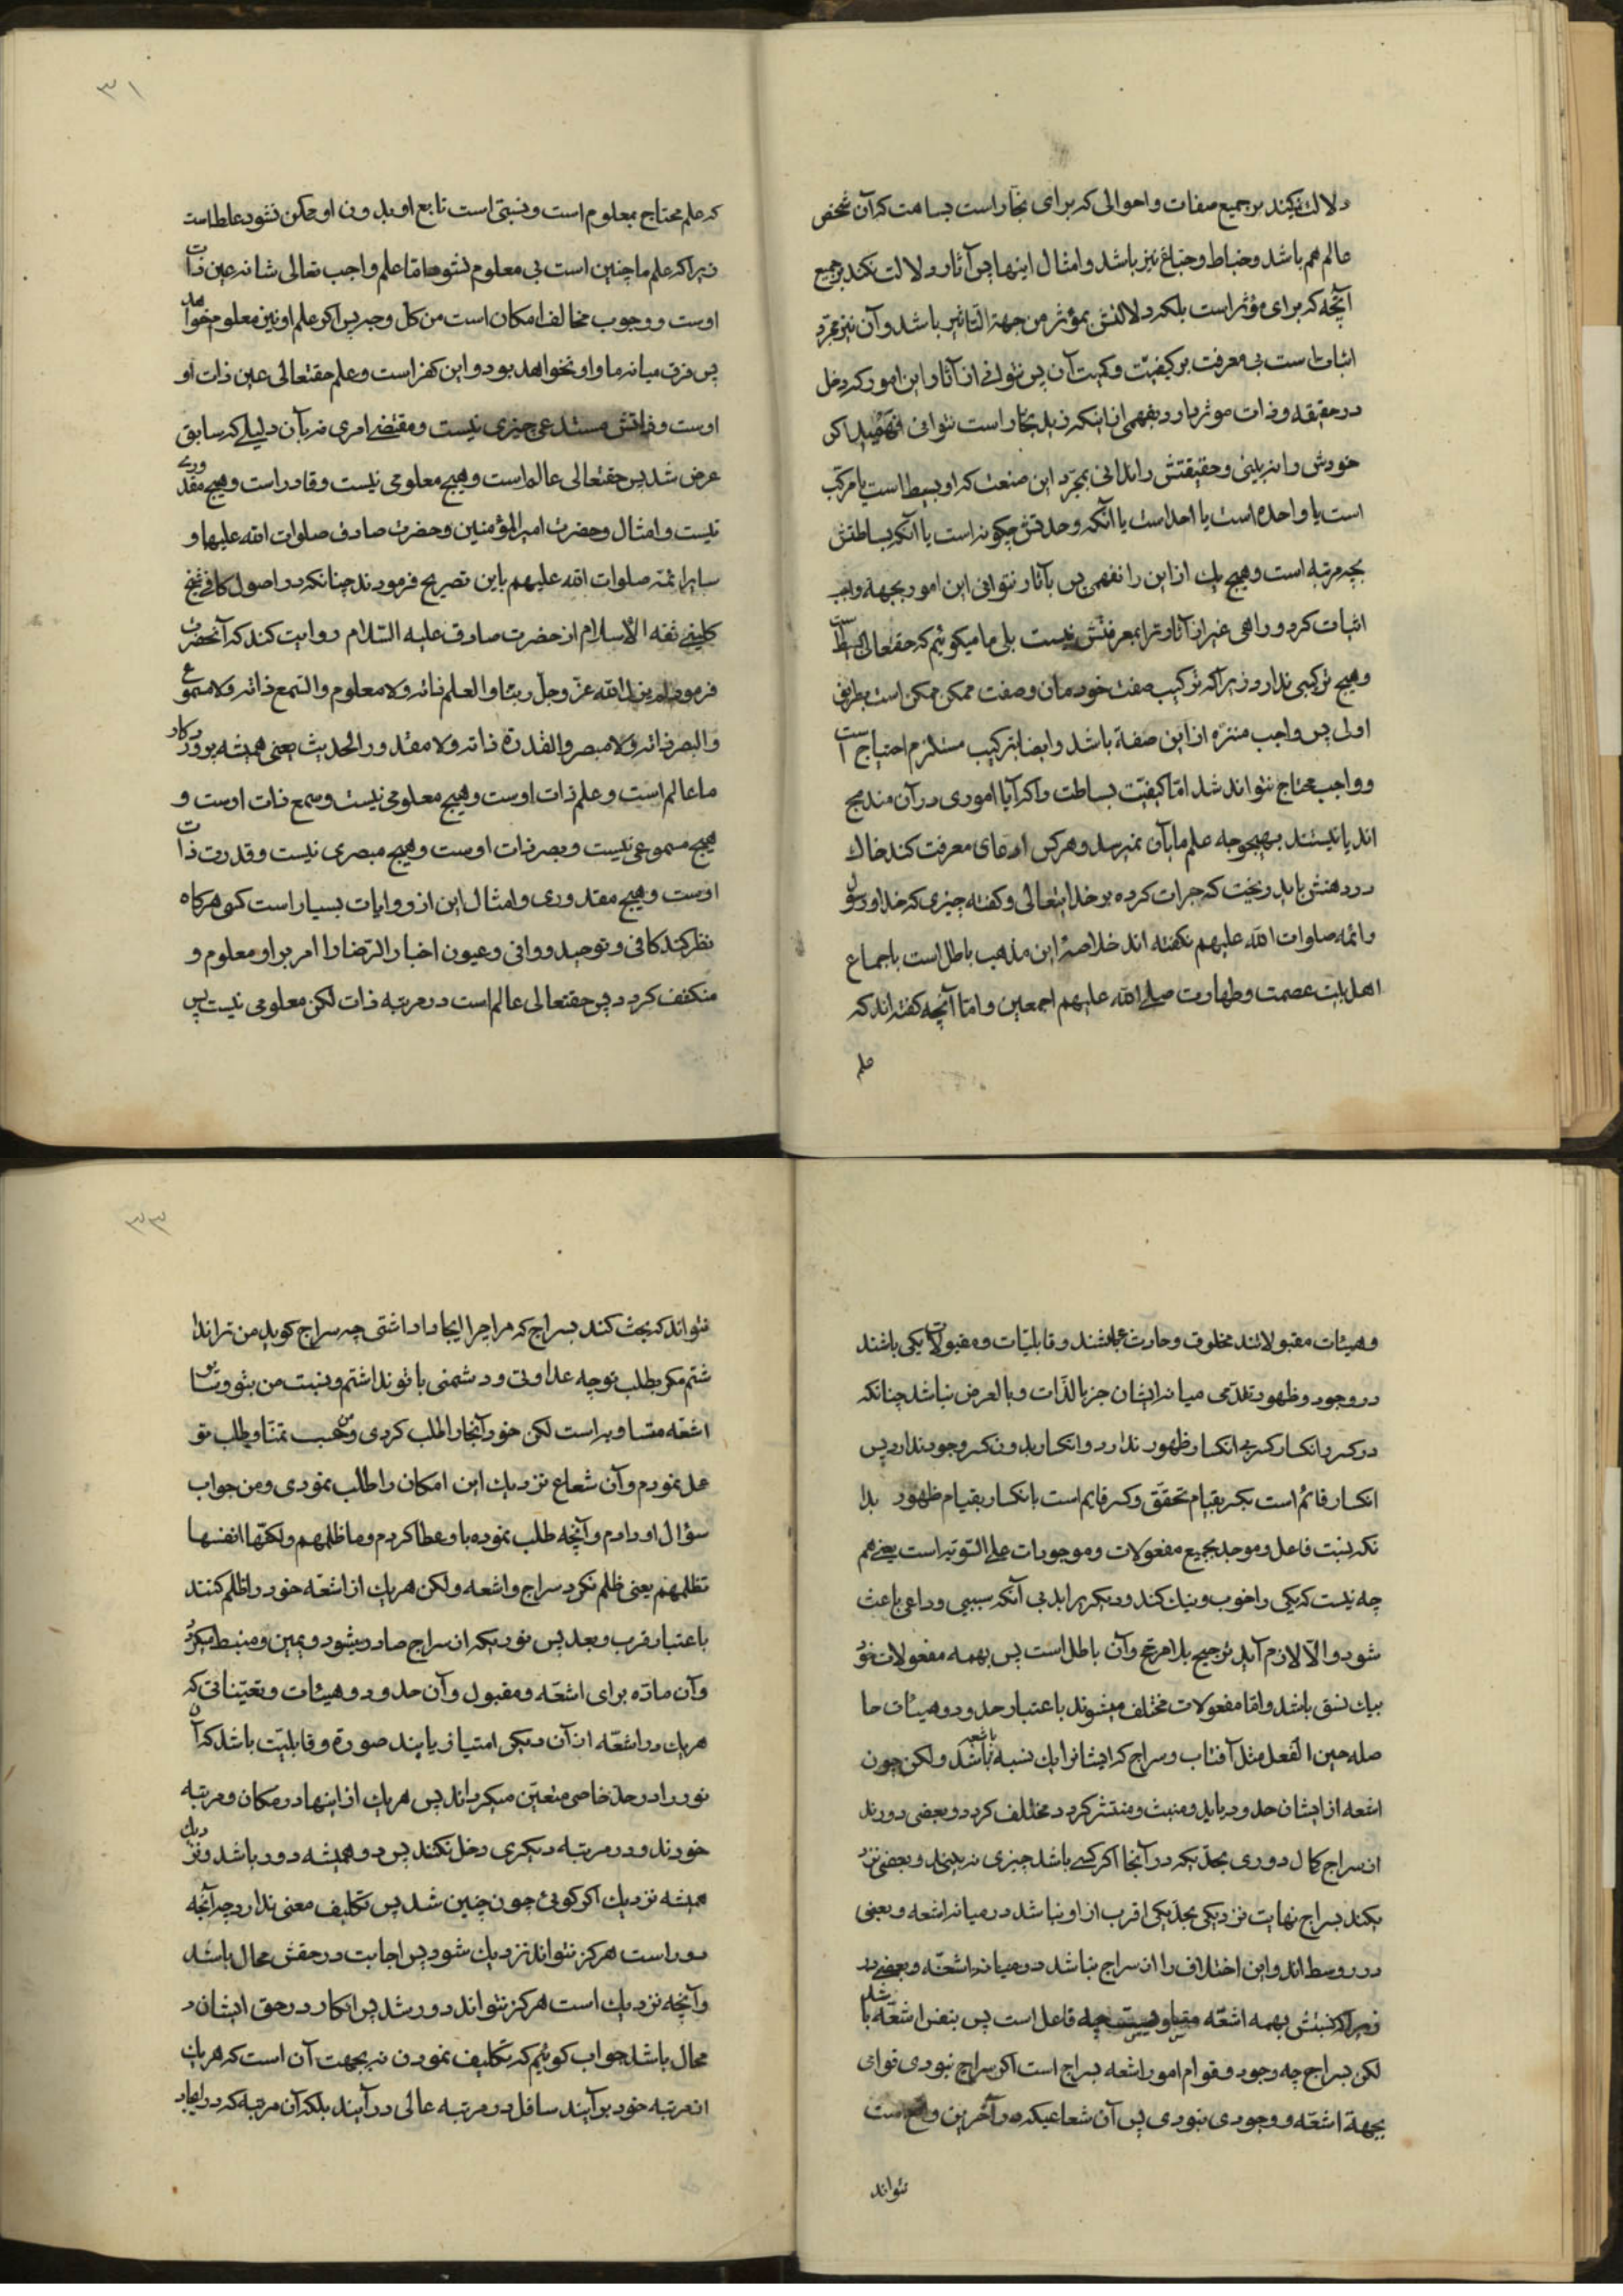 دلالت نمیکند بر جمیع صفات و احوالی که برای نجار است بساهست که آن شخص
عالم هم باشد و خباط و صباغ نیز باشد و امثال اینها پس آثار دلالت نکند بر جمیع
آنچه که برای مؤثر است بلکه دلالتش بمؤثر من جهة التاثیر باشد و آن نیز مجرد
اثبات است بی معرفت بر کیفیت و کمیت آن پس نتوانی از آثار این امور که دخل
در حقیقه و ذات موثر دارد بفهمی از اینکه زید نجار است نتوانی فهمید اگر
خودش را نه بینی و حقیقتش را ندانی بمجرد این صنعت که او بسیط است یا مرکب
است یا واحد است یا احد است یا آنکه وحدتش چگونه است یا آنکه بساطتش
بچه مرتبه است و هیچ یک از این را نفهمی پس بآثار نتوانی این امور بجهة واجب
اثبات کرد و راهی غیر از آثار ترا بمعرفتش نیست بلی ما میگوئیم که حقتعالی بسیط است
و هیچ ترکیبی ندارد زیرا که ترکیب صفت خودمان و صفت ممکن ممکن است بطریق
اولی پس واجب منزه از این صفة باشد و ایضا ترکیب مستلزم احتیاج است
و واجب محتاج نتواند شد اما کیفیت بساطت و اگر آیا اموری در آن مندمج
اند یا نیستند بهیچوجه علم ما بآن نمیرسد و هر کس ادعای معرفت کند خاک
در دهنش باید ریخت که جرات کرده بر خدایتعالی و گفته چیزی که خدا و رسول
و ائمه صلوات الله علیهم نگفته اند خلاصه این مذهب باطل است باجماع
اهل بیت عصمت و طهارت صلی الله علیهم اجمعین و اما آنچه گفته اند که
علم
٣١
که علم محتاج بمعلوم است و نسبتی است تابع او بدون او ممکن نشود غلط است
زیرا که علم ما چنین است بی معلوم نشود اما علم واجب تعالی شانه عین ذات
اوست و وجوب مخالف امکان است من کل وجه پس اگر علم او نیز معلوم خواهد
پس فرق میانه ما و او نخواهد بود و این کفر است و علم حقتعالی عین ذات او
اوست و ذاتش مستدعی چیزی نیست و مقتضی امری نه بآن دلیلی که سابق
عرض شد پس حقتعالی عالم است و هیچ معلومی نیست و قادر است و هیچ مقدوری
نیست و امثال و حضرت امیر المؤمنین و حضرت صادق صلوات الله علیهما و
سایر ائمه صلوات الله علیهم باین تصریح فرمودند چنانکه در اصول کافی شیخ
کلینی ثقه الاسلام از حضرت صادق علیه السلام روایت کند که آنحضرت
فرمود لم یزل الله عز و جل ربنا و العلم ذاته و لا معلوم و السمع ذاته و لا مسموع
و البصر ذاته و لا مبصر و القدرة ذاته و لا مقدور الحدیث یعنی همیشه پروردکار
ما عالم است و علم ذات اوست و هیچ معلومی نیست و سمع ذات اوست و
هیچ مسموعی نیست و بصر ذات اوست و هیچ مبصری نیست و قدرت ذات
اوست و هیچ مقدوری و امثال این از روایات بسیار است کسی هرکاه
نظر کند کافی و توحید و وافی و عیون اخبار الرضا را امر بر او معلوم و
منکشف کردد پس حقتعالی عالم است در مرتبه ذات لکن معلومی نیست پس
و هیئات مقبولاتند مخلوق و حادث باشند و قابلیات و مقبولات یکی باشند
در وجود و ظهور تقدمی میانه ایشان جز بالذات و بالعرض نباشد چنانکه
در کسر و انکسار کسر بی انکسار ظهور ندارد و انکسار بدون کسر وجود ندارد پس
انکسار قائم است بکسر بقیام تحقق و کسر قایم است بانکسار بقیام ظهور بدا
نکه نسبت فاعل و موجد بجمیع مفعولات و موجودات علی السویه است یعنی هم
چه نیست که یکی را خوب و نیک کند و دیکر را بد بی آنکه سببی و داعی باعث
شود و الا لازم آید ترجیح بلا مرجح و آن باطل است پس بهمه مفعولات خود
بیک نسق باشد و اما مفعولات مختلف میشوند باعتبار حدود و هیئات حا
صله حین الفعل مثل آفتاب و سراج که ایشانرا یک نسبه باشعه باشد و لکن چون
اشعه از ایشان حدود یابد و منبث و منتشر کردد مختلف کردد و بعضی دورند
از سراج کمال دوری بحدیکه در آنجا اکر کسی باشد چیزی نه بیند و بعضی نزد
یکند بسراج نهایت نزدیکی بحدیکی اقرب از او نباشد در میانه اشعه و بعضی
در وسط اند و این اختلاف را از سراج نباشد در میانه اشعه و بعضی در
زیرا که نسبتش بهمه اشعه مساویست چه فاعل است پس بنفس اشعه باشد
لکن بسراج چه وجود و قوام امور اشعه بسراج است اکر سراج نبودی قوامی
بجهة اشعه و وجودی نبودی پس آن شعاعیکه در آخرین واقع است
نتواند
٣٣
نتواند که بحث کند بسراج که مرا چرا ایجاد داشتی چه سراج کوید من ترا ندا
شتم مکر بطلب تو چه عداوتی و دشمنی با تو نداشتم و نسبت من بتو و سایر
اشعه متساویه است لکن خود آنجا را طلب کردی و من حسب تمنا و طلب تو
عمل نمودم و آن شعاع نزدیک این امکان را طلب نمودی و من جواب
سؤال او دادم و آنچه طلب نموده باو عطا کردم و ما ظلمهم و لکنها انفسها
تظلمهم یعنی ظلم نکرد سراج و اشعه و لکن هر یک از اشعه خود را ظلم کنند
باعتبار قرب و بعد پس نوریکه از سراج صادر میشود و مبین و منبسط میکردد
و آن ماده برای اشعه و مقبول و آن حدود و هیئات و تعیناتی که
هر یک در اشعه از آن دیکری امتیاز یابند صورة و قابلیت باشد که آن
نور را در حد خاصی متعین میکرداند پس هر یک از اینها در مکان و مرتبه
خودند و در مرتبه دیکری دخل نکنند پس دور همیشه دور باشد و نزدیک
همیشه نزدیک اکر کوئی چون چنین شد پس تکلیف معنی ندارد چه آنچه
دور است هرکز نتواند نزدیک شود پس اجابت در حقش محال باشد
و آنچه نزدیک است هرکز نتواند دور شد پس انکار در حق ایشان د
محال باشد جواب کوئیم که تکلیف نمودن نه بجهت آن است که هر یک
از مرتبه خود برآیند سافل در مرتبه عالی در آیند بلکه آن مرتبه که در ایجاد